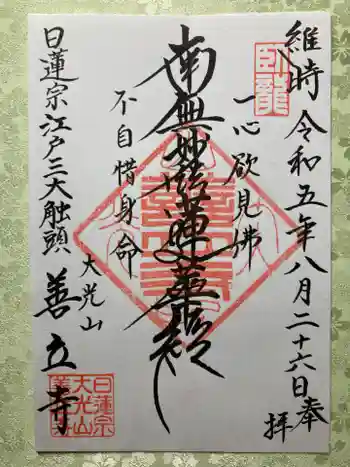 維時 令和五年八月二十六日奉拝
臥龍
一心欲見佛
南無妙法蓮華経
不自惜身命
大光山
日蓮宗江戸三大触頭 善立寺
日蓮宗
大光山
善立寺